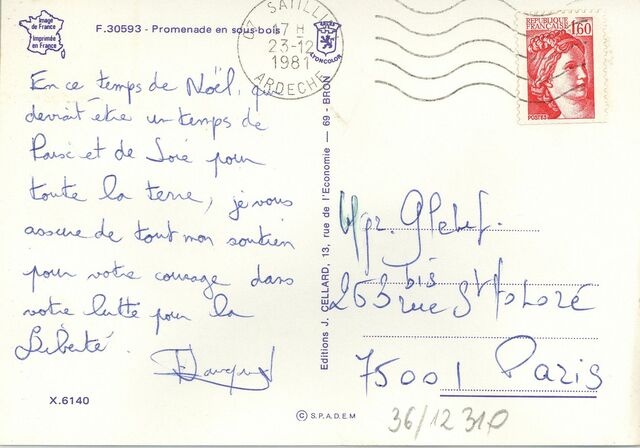 Image
de France
Imprimée
en France
F.30593 - Promenade en sous-bois
07 SATILLIEU
17 H
23-12
1981
ARDECHE
LYONCOLOR
REPUBLIQUE
FRANÇAISE
1,60
POSTES
En ce temps de Noël, qui
devrait être un temps de
Paix et de Joie pour
toute la terre, je vous
assure de tout mon soutien
pour votre courage dans
votre lutte pour la
Liberté.
X.6140
Editions J. CELLARD, 13, rue de l'Economie — 69 - BRON
Mgr. Glemp.
263 bis rue St Honoré
75001 Paris
© S.P.A.D.E.M
36/12 310